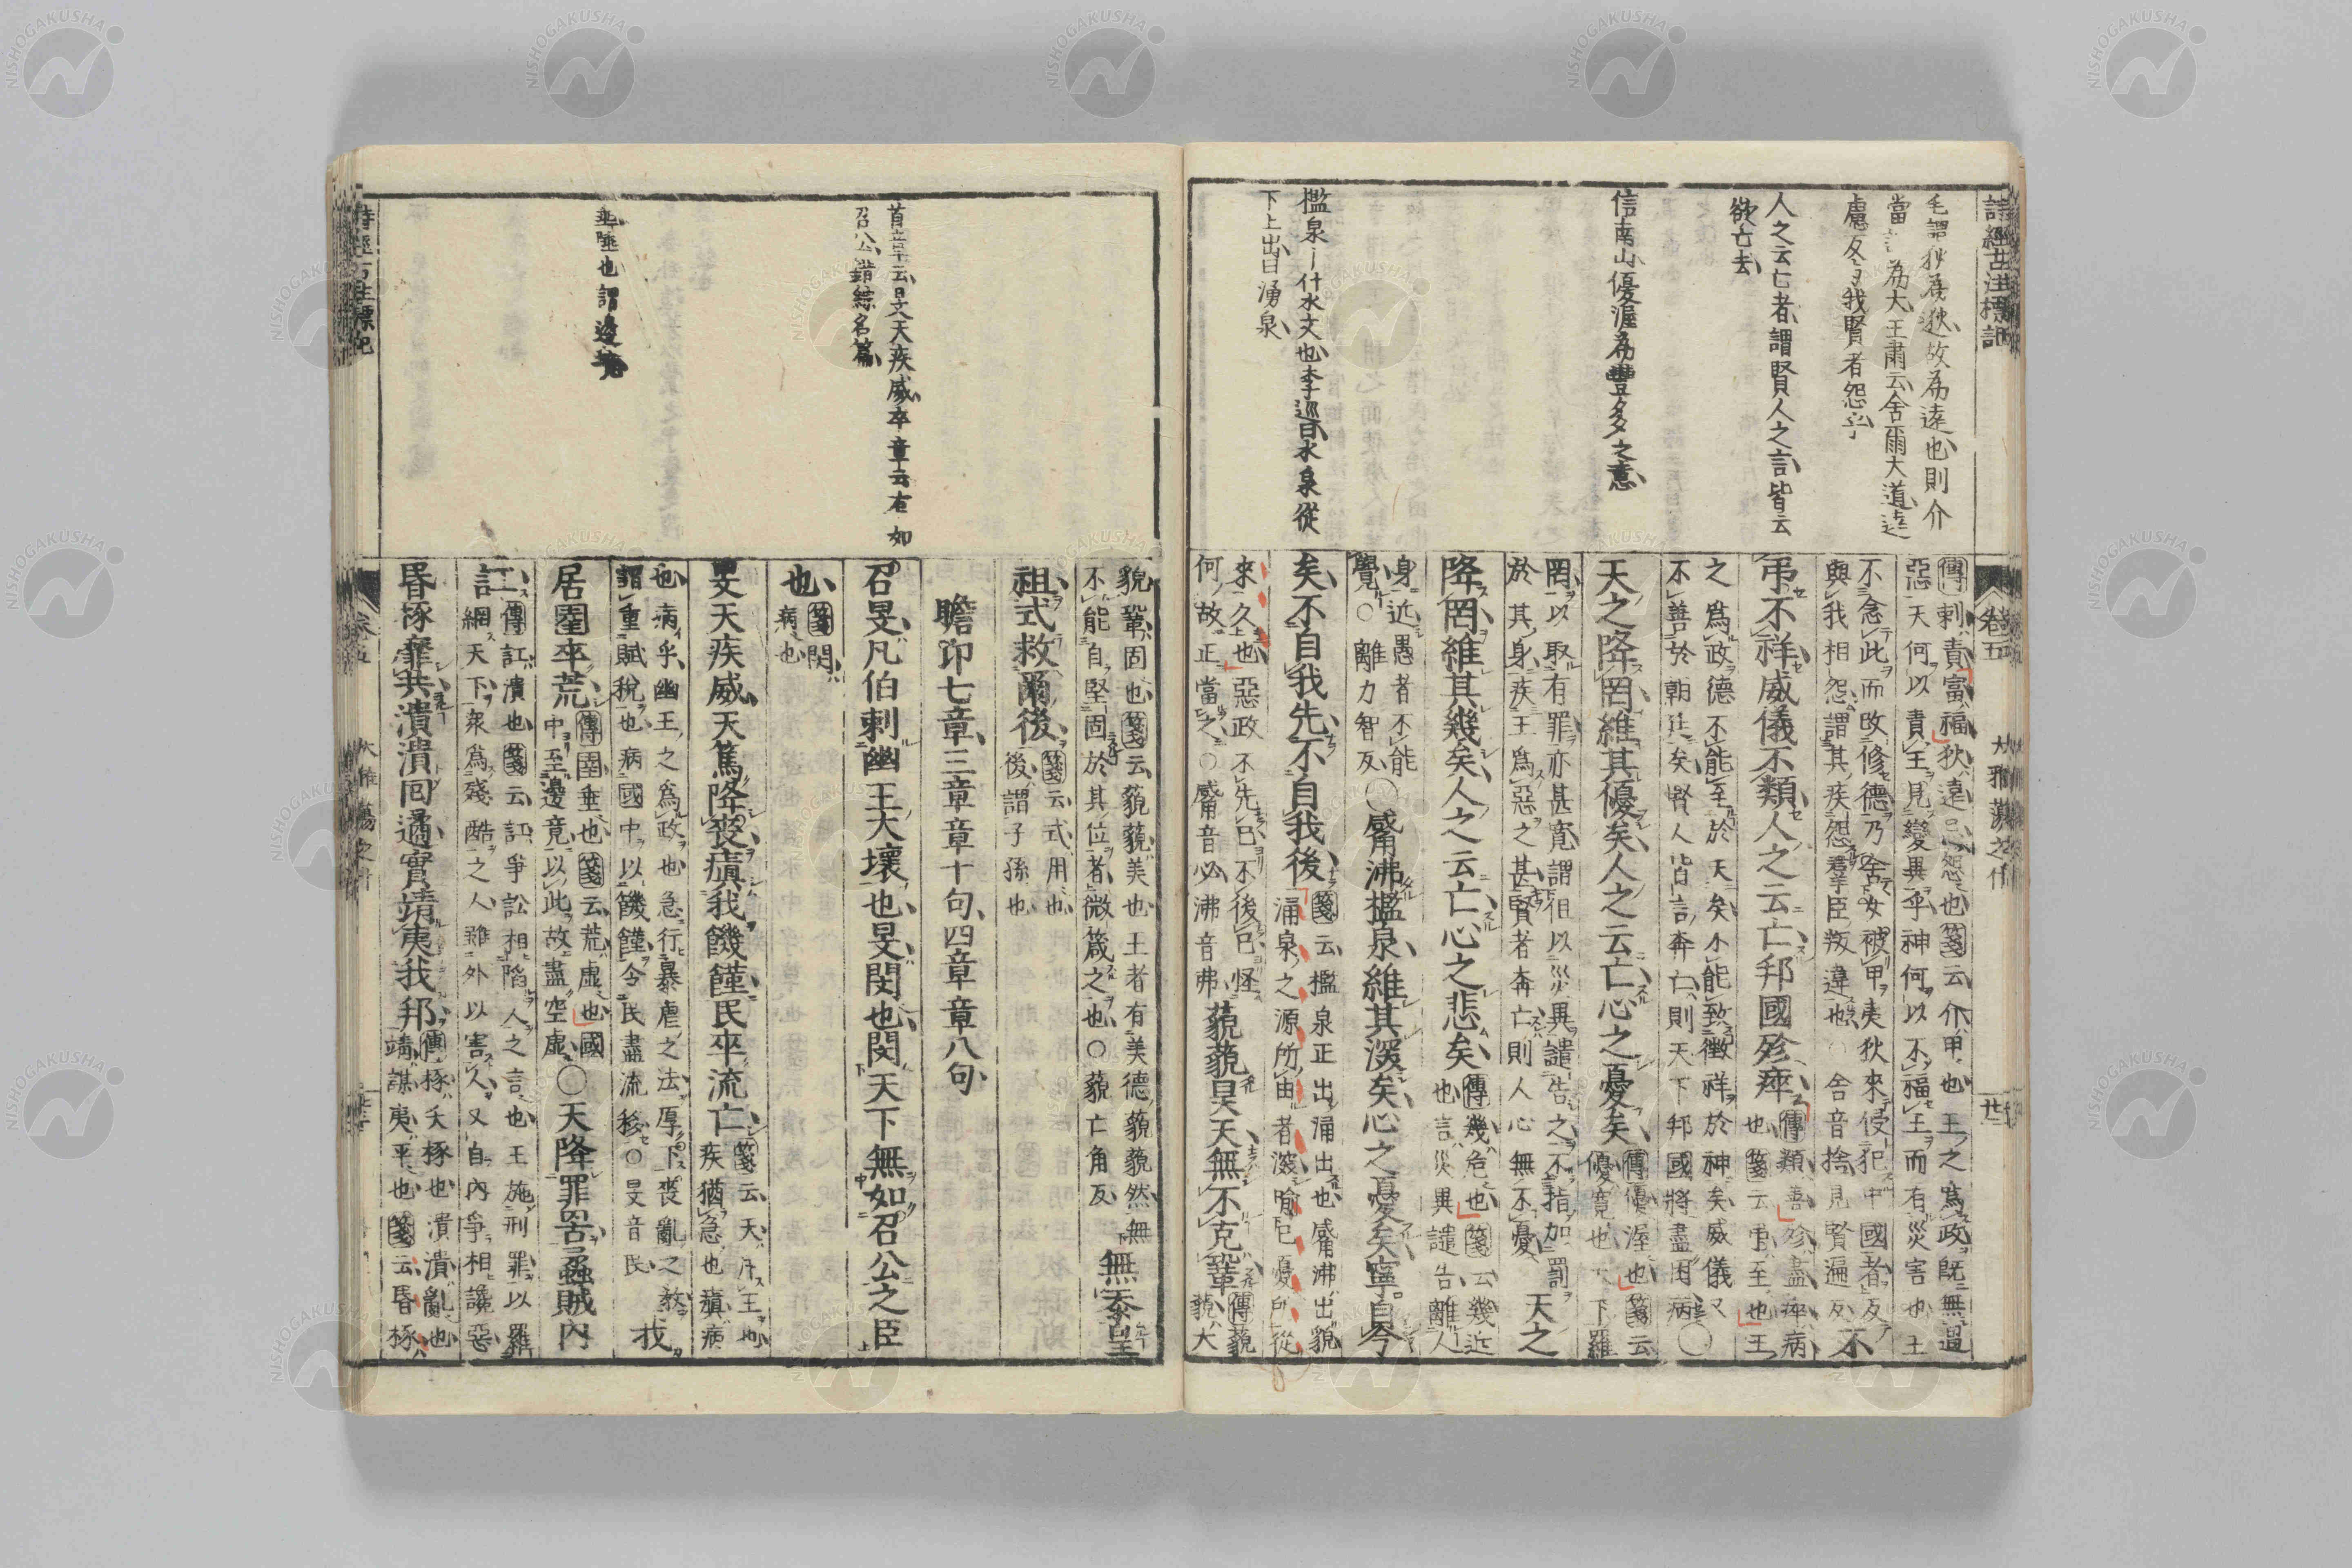 詩經古注標記
毛謂狄爲逖故為遠也則介
當訓為大王肅云舍爾大道遠
慮反与我賢者怨乎
人之云亡者謂賢人之言皆云
欲亡去
信南山優渥為豊多之意
檻泉釈水文也李巡曰水泉從
下上出曰湧泉
卷五
大雅蕩之什
傳刺責富福狄遠忌怨也箋云介甲也王之爲政旣無過
惡天何以責王見變異乎神何以不福王而有災害也王
不念此而改修德乃舍女被甲夷狄來侵犯中國者反
與我相怨謂其疾怨羣臣叛違也○舍音捨見賢遍反不
弔不祥威儀不類人之云亡邦國殄瘁傳類善殄盡瘁病
也箋云弔至也王
之爲政德不能至於天矣不能致徵祥於神矣威儀又
不善於朝廷矣賢人皆言奔亡則天下邦國將盡困病○
天之降罔維其優矣人之云亡心之憂矣傳優渥也箋云
優寬也天下羅
罔以取有罪亦甚寬謂但以災異譴告之不指加罰
於其身疾王爲惡之甚賢者奔亡則人心無不憂天之
降罔維其幾矣人之云亡心之悲矣傳幾危也箋云幾近
也言災異譴告離人
身近愚者不能
覺○離力智反○觱沸檻泉維其深矣心之憂矣寧自今
矣不自我先不自我後箋云檻泉正出涌出也觱沸出貌
涌泉之源所由者深喻己憂所從
來久也惡政不先己不後己怪
何故正當之○觱音必沸音弗藐藐昊天無不克鞏傳藐
藐大
貌鞏固也箋云藐藐美也王者有美德藐藐然無
不能自堅固於其位者微箴之也○藐亡角反無忝皇
祖式救爾後箋云式用也
後謂子孫也
瞻卬七章三章章十句四章章八句
召旻凡伯刺幽王大壞也旻閔也閔天下無如召公之臣
也箋閔
病也
旻天疾威天篤降喪瘨我饑饉民卒流亡箋云天斥王也
疾猶急也瘨病
也病乎幽王之爲政也急行暴虐之法厚下喪亂之教
謂重賦稅也病國中以饑饉令民盡流移○旻音民我
居圉卒荒傳圉垂也箋云荒虛也國
中至邊竟以此故盡空虛○天降罪罟蟊賊內
訌傳訌潰也箋云訌爭訟相陷人之言也王施刑罪以羅
網天下眾爲殘酷之人雖外以害人又自內爭相讒惡
昬椓靡共潰潰回遹實靖夷我邦傳椓夭椓也潰潰亂也
靖謀夷平也箋云昬椓
首章云旻天疾威卒章云有如
召公錯綜名篇
垂陲也謂邊境